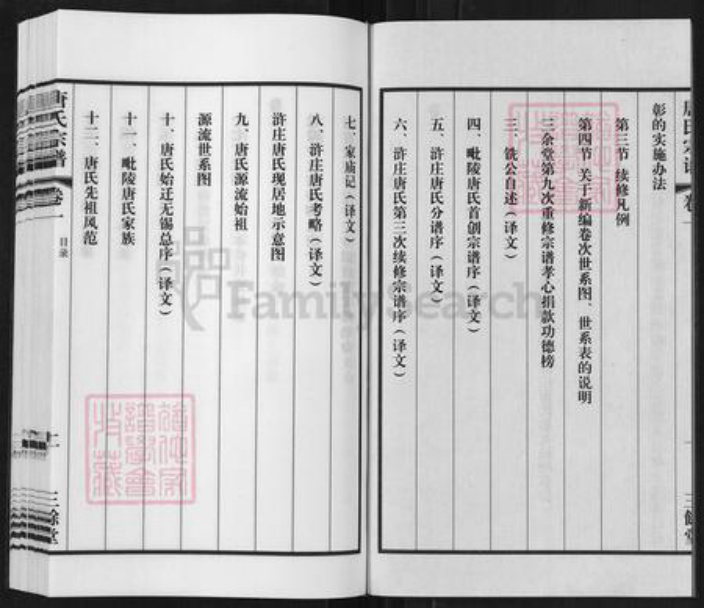 唐氏宗谱 卷一
三餘堂
彰的实施办法
第三节 续修凡例
第四节 关于新编卷次世系图、世系表的说明
三余堂第九次重修宗谱孝心捐款功德榜
三、铣公自述（译文）
四、毗陵唐氏首创宗谱序（译文）
五、浒庄唐氏分谱序（译文）
六、浒庄唐氏第三次续修宗谱序（译文）
七、家庙记（译文）
八、浒庄唐氏考略（译文）
浒庄唐氏现居地示意图
九、唐氏源流始祖
源流世系图
十、唐氏始迁无锡总序（译文）
十一、毗陵唐氏家族
十二、唐氏先祖风范
唐氏宗谱 卷一 目录 二 三餘堂
FamilySearch